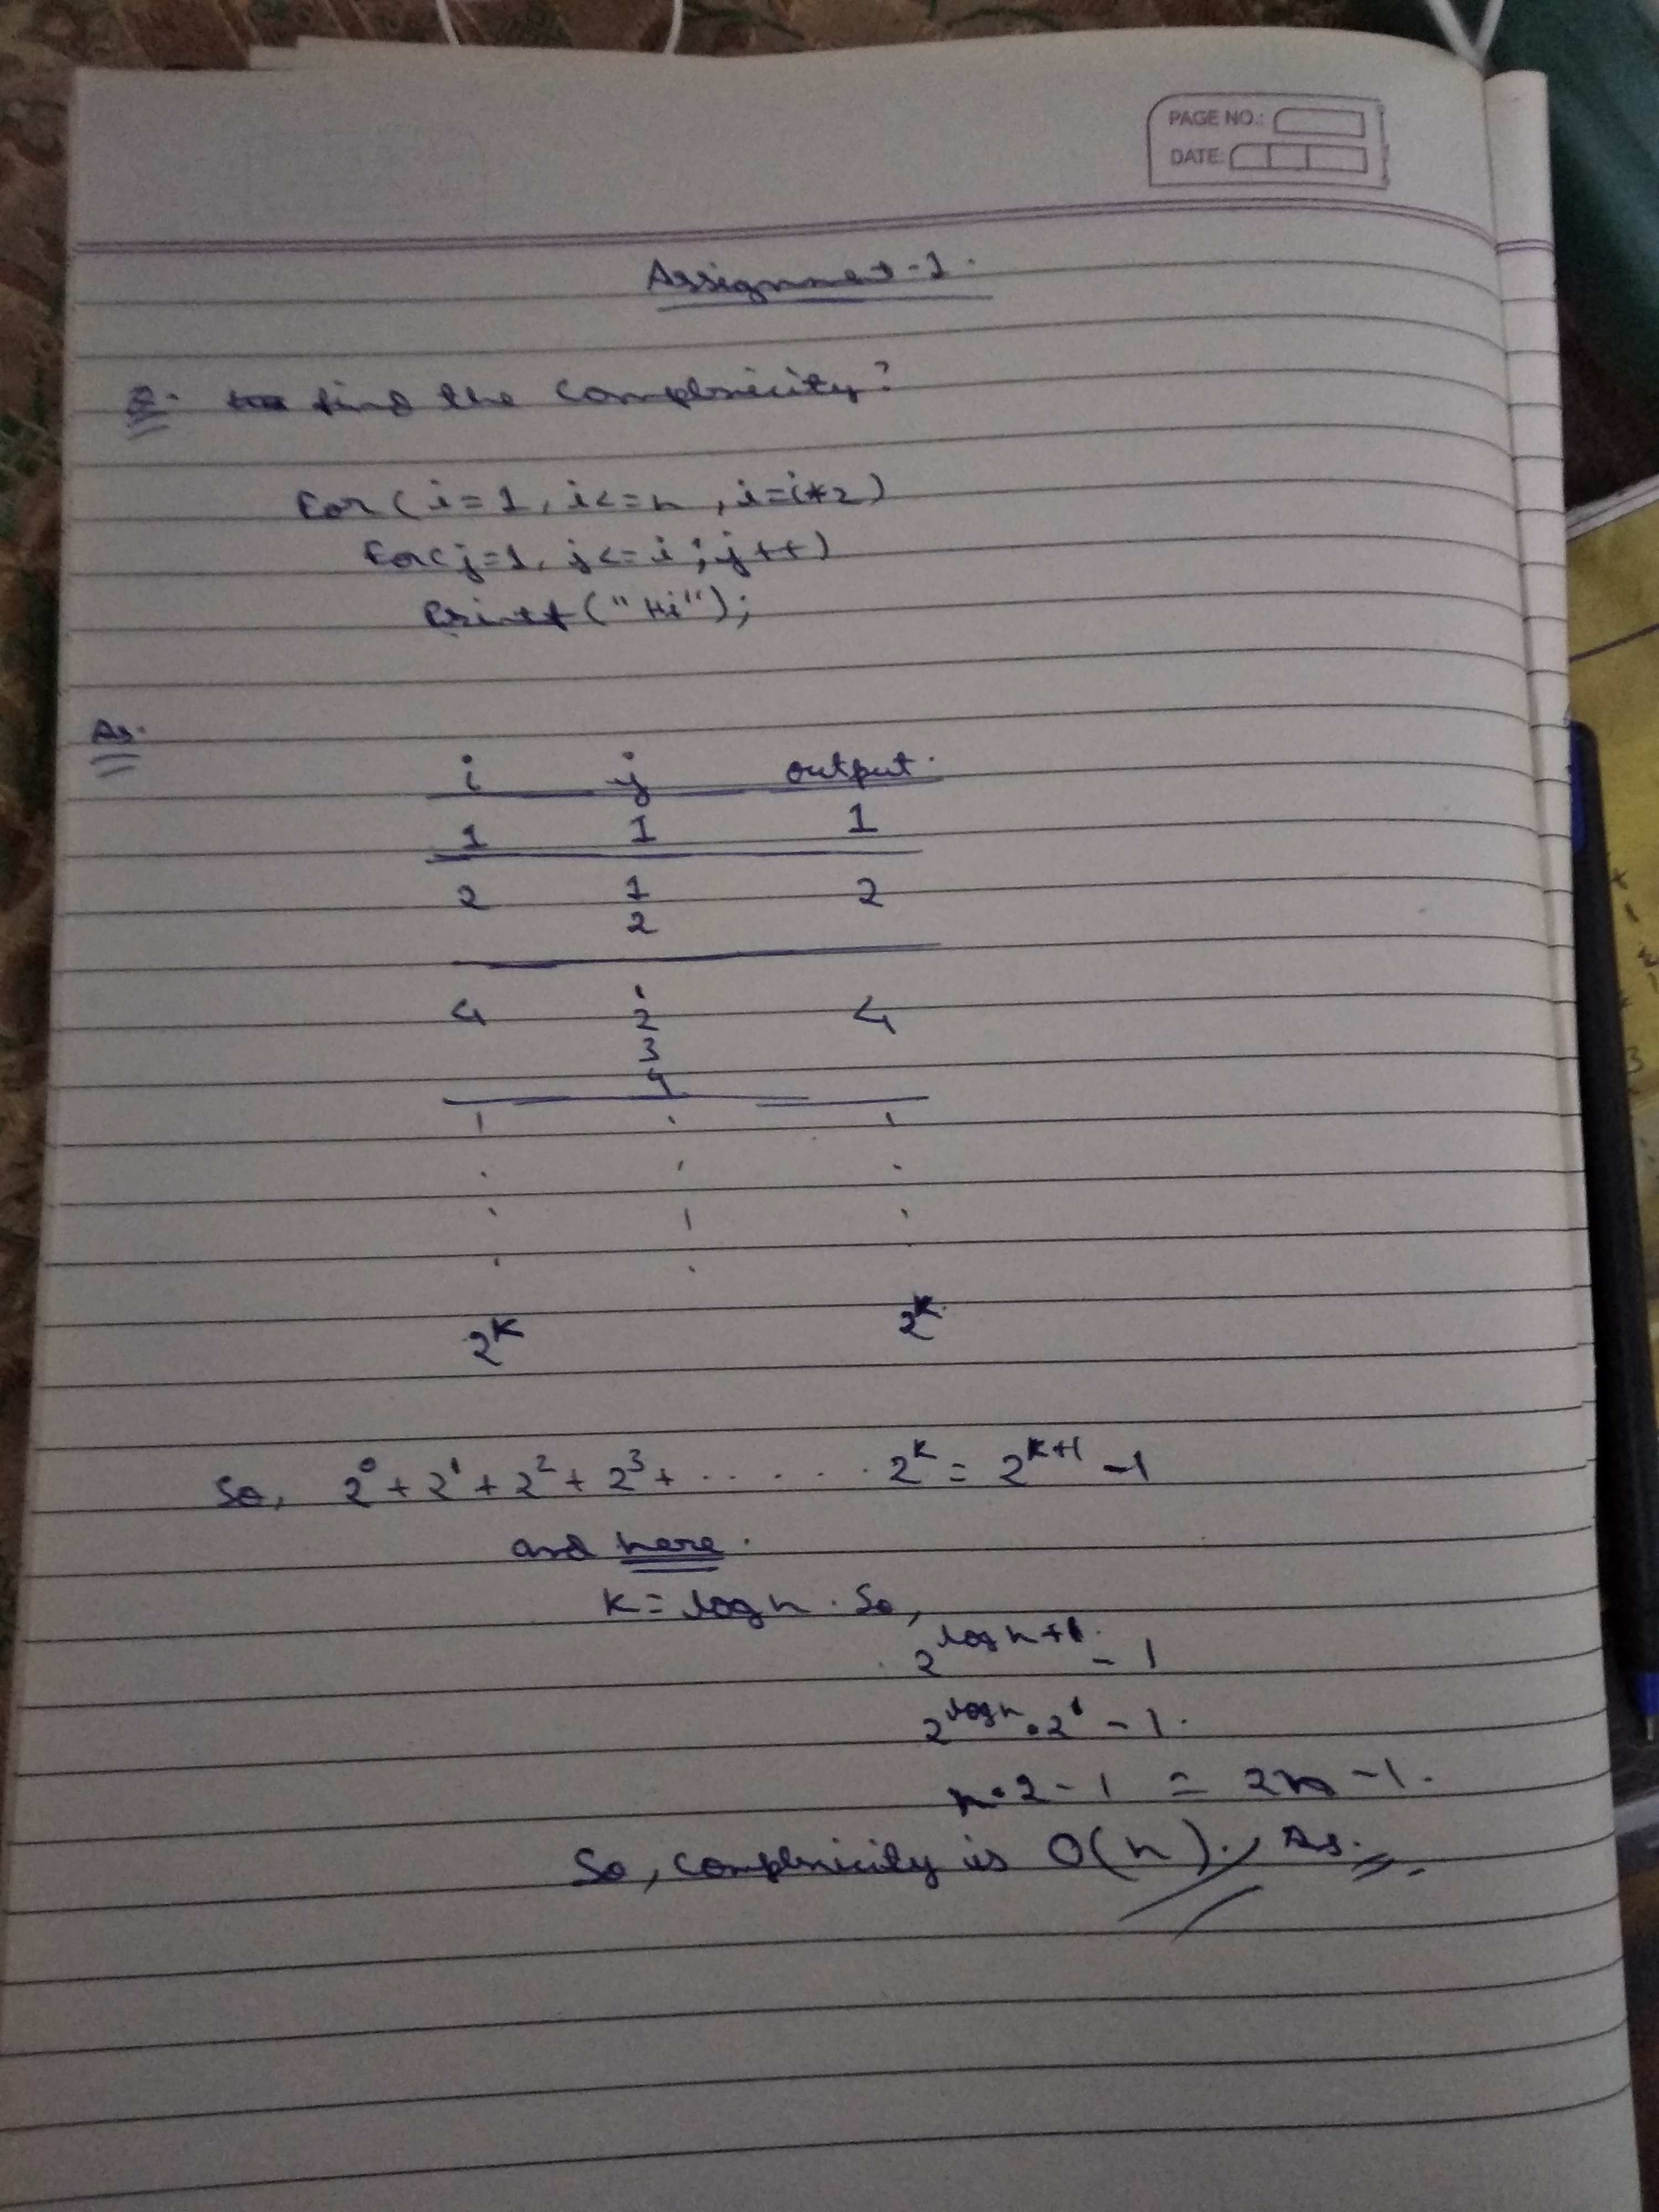 PAGE NO.:
DATE:
Assignmet-1.
Q. find the Complexicity?
for(i=1, i<=n, i=i*2)
for(j=1, j<=i; j++)
Printf("Hi");
As.
i j output.
1 1 1
2 1 2
2
4 1 4
2
3
4
2^k 2^k.
So, 2^0 + 2^1 + 2^2 + 2^3 + ...... 2^k = 2^(k+1) - 1
and here.
k = log n. So,
2^(log n+1) - 1
2^(log n) . 2^1 - 1.
n.2 - 1 = 2n - 1.
So, complexicity is O(n). As.